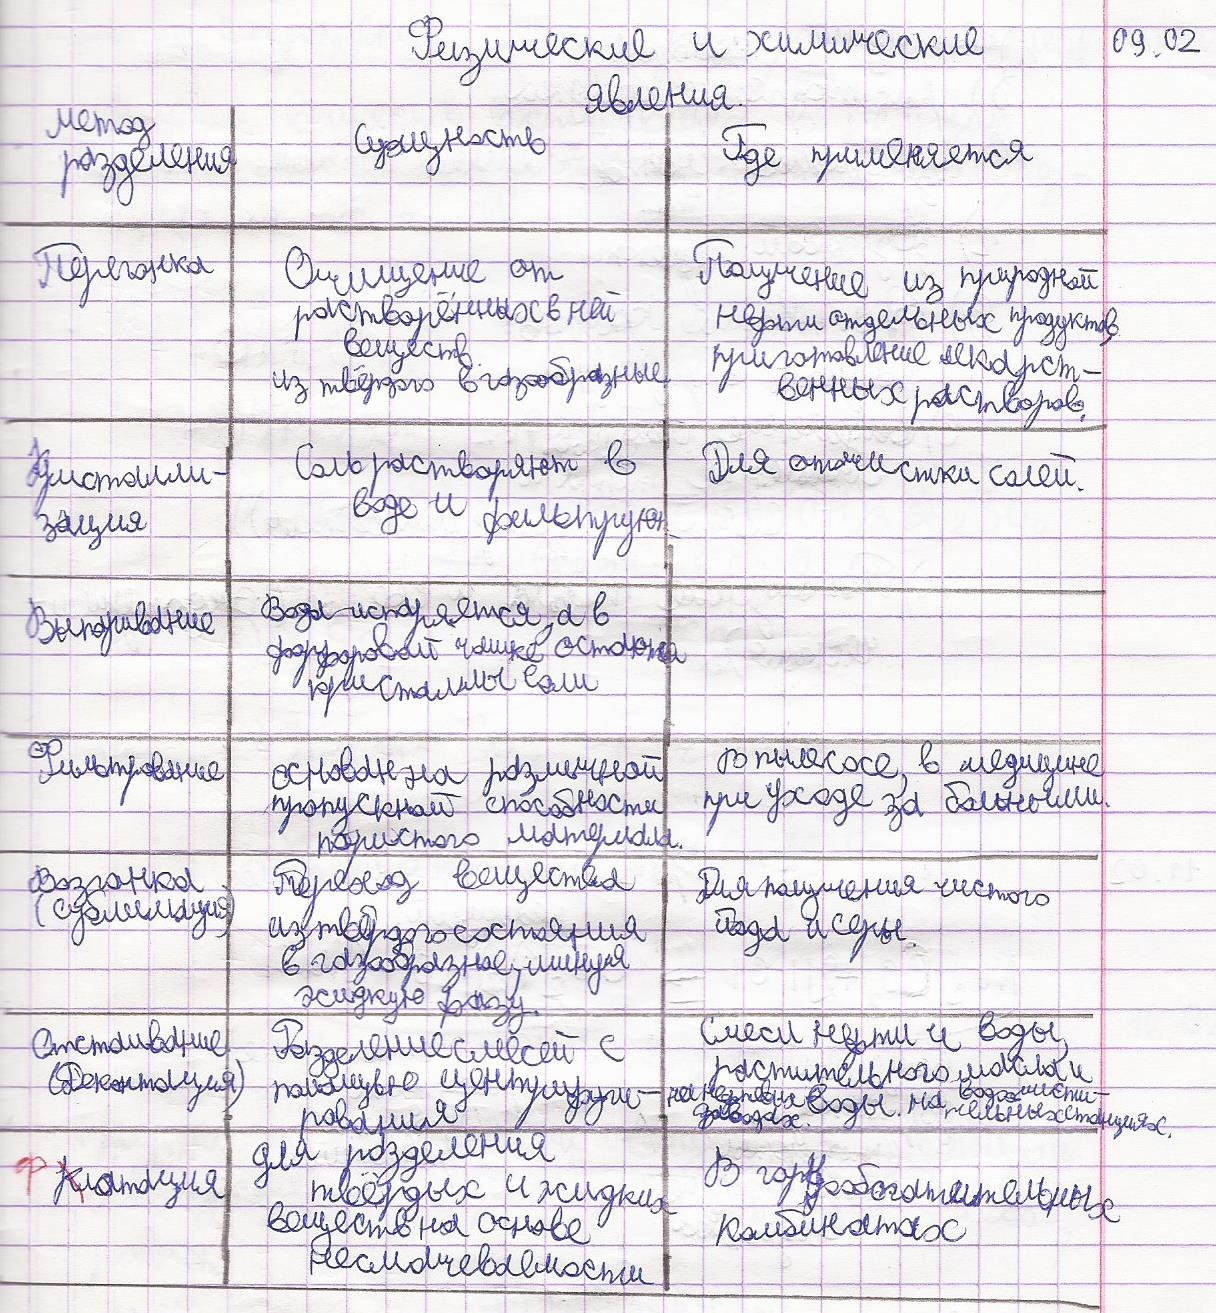 Физические и химические 09.02
явления.
метод
разделения
Сущность
Где применяется
Перегонка
Очищение от
растворённых в ней
веществ.
из твёрдого в газообразные
Получение из природной
нефти отдельных продуктов,
приготовление лекарст-
венных растворов.
Кристалли-
зация
Соль растворяют в
воде и фильтруют
Для отчистки солей.
Выпаривание
Вода испаряется, а в
фарфоровой чашке остаются
кристаллы соли
Фильтрование
основан на различной
пропускной способности
пористого материала.
в пылесосе, в медицине
при уходе за больными.
Возгонка
(сублимация)
Переход вещества
из твёрдого состояния
в газообразное, минуя
жидкую фазу.
Для получения чистого
йода и серы.
Отстаивание
(Декантация)
Разделение смесей с
помощью центрифуги-
рования
Смеси нефти и воды,
растительного масла и
воды. на водоочисти-
тельных станциях.
на нефтяных
заводах.
Флотация
для разделения
твёрдых и жидких
веществ на основе
несмачеваемости
В горнообогатительных
комбинатах